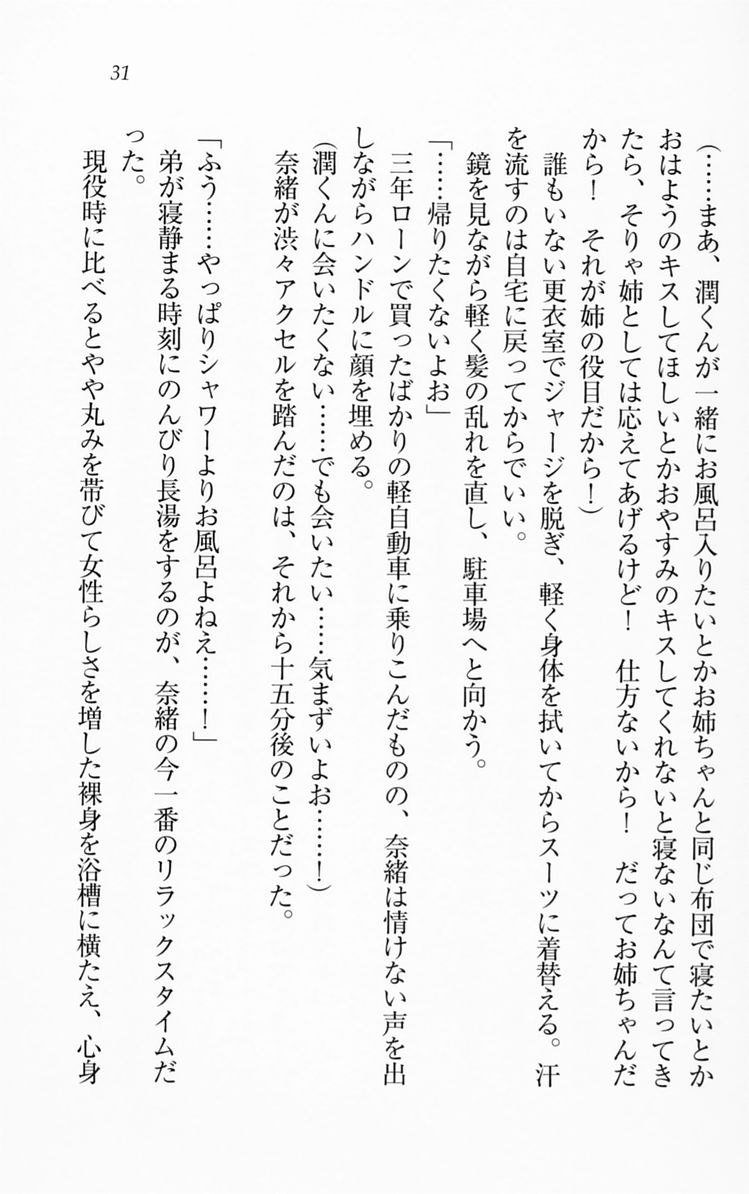 31
(……まあ、潤くんが一緒にお風呂入りたいとかお姉ちゃんと同じ布団で寝たいとか
おはようのキスしてほしいとかおやすみのキスしてくれないと寝ないなんて言ってき
たら、そりゃ姉としては応えてあげるけど!　仕方ないから!　だってお姉ちゃんだ
から!　それが姉の役目だから!)
　誰もいない更衣室でジャージを脱ぎ、軽く身体を拭いてからスーツに着替える。汗
を流すのは自宅に戻ってからでいい。
　鏡を見ながら軽く髪の乱れを直し、駐車場へと向かう。
「……帰りたくないよお」
　三年ローンで買ったばかりの軽自動車に乗りこんだものの、奈緒は情けない声を出
しながらハンドルに顔を埋める。
(潤くんに会いたくない……でも会いたい……気まずいよお……!)
　奈緒が渋々アクセルを踏んだのは、それから十五分後のことだった。
「ふう……やっぱりシャワーよりお風呂よねえ……!」
　弟が寝静まる時刻にのんびり長湯をするのが、奈緒の今一番のリラックスタイムだ
った。
　現役時に比べるとやや丸みを帯びて女性らしさを増した裸身を浴槽に横たえ、心身